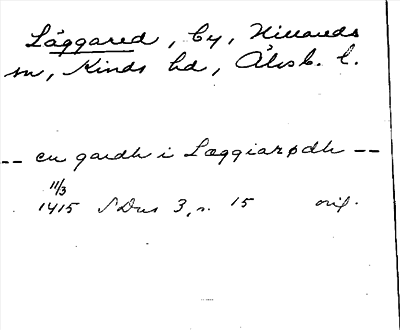 Läggared, by, Hillareds
sn, Kinds hd, Älvsb. l.
-- en gardh i Læggiarødh --
11/3
1415 SDns 3, s. 15 orig.